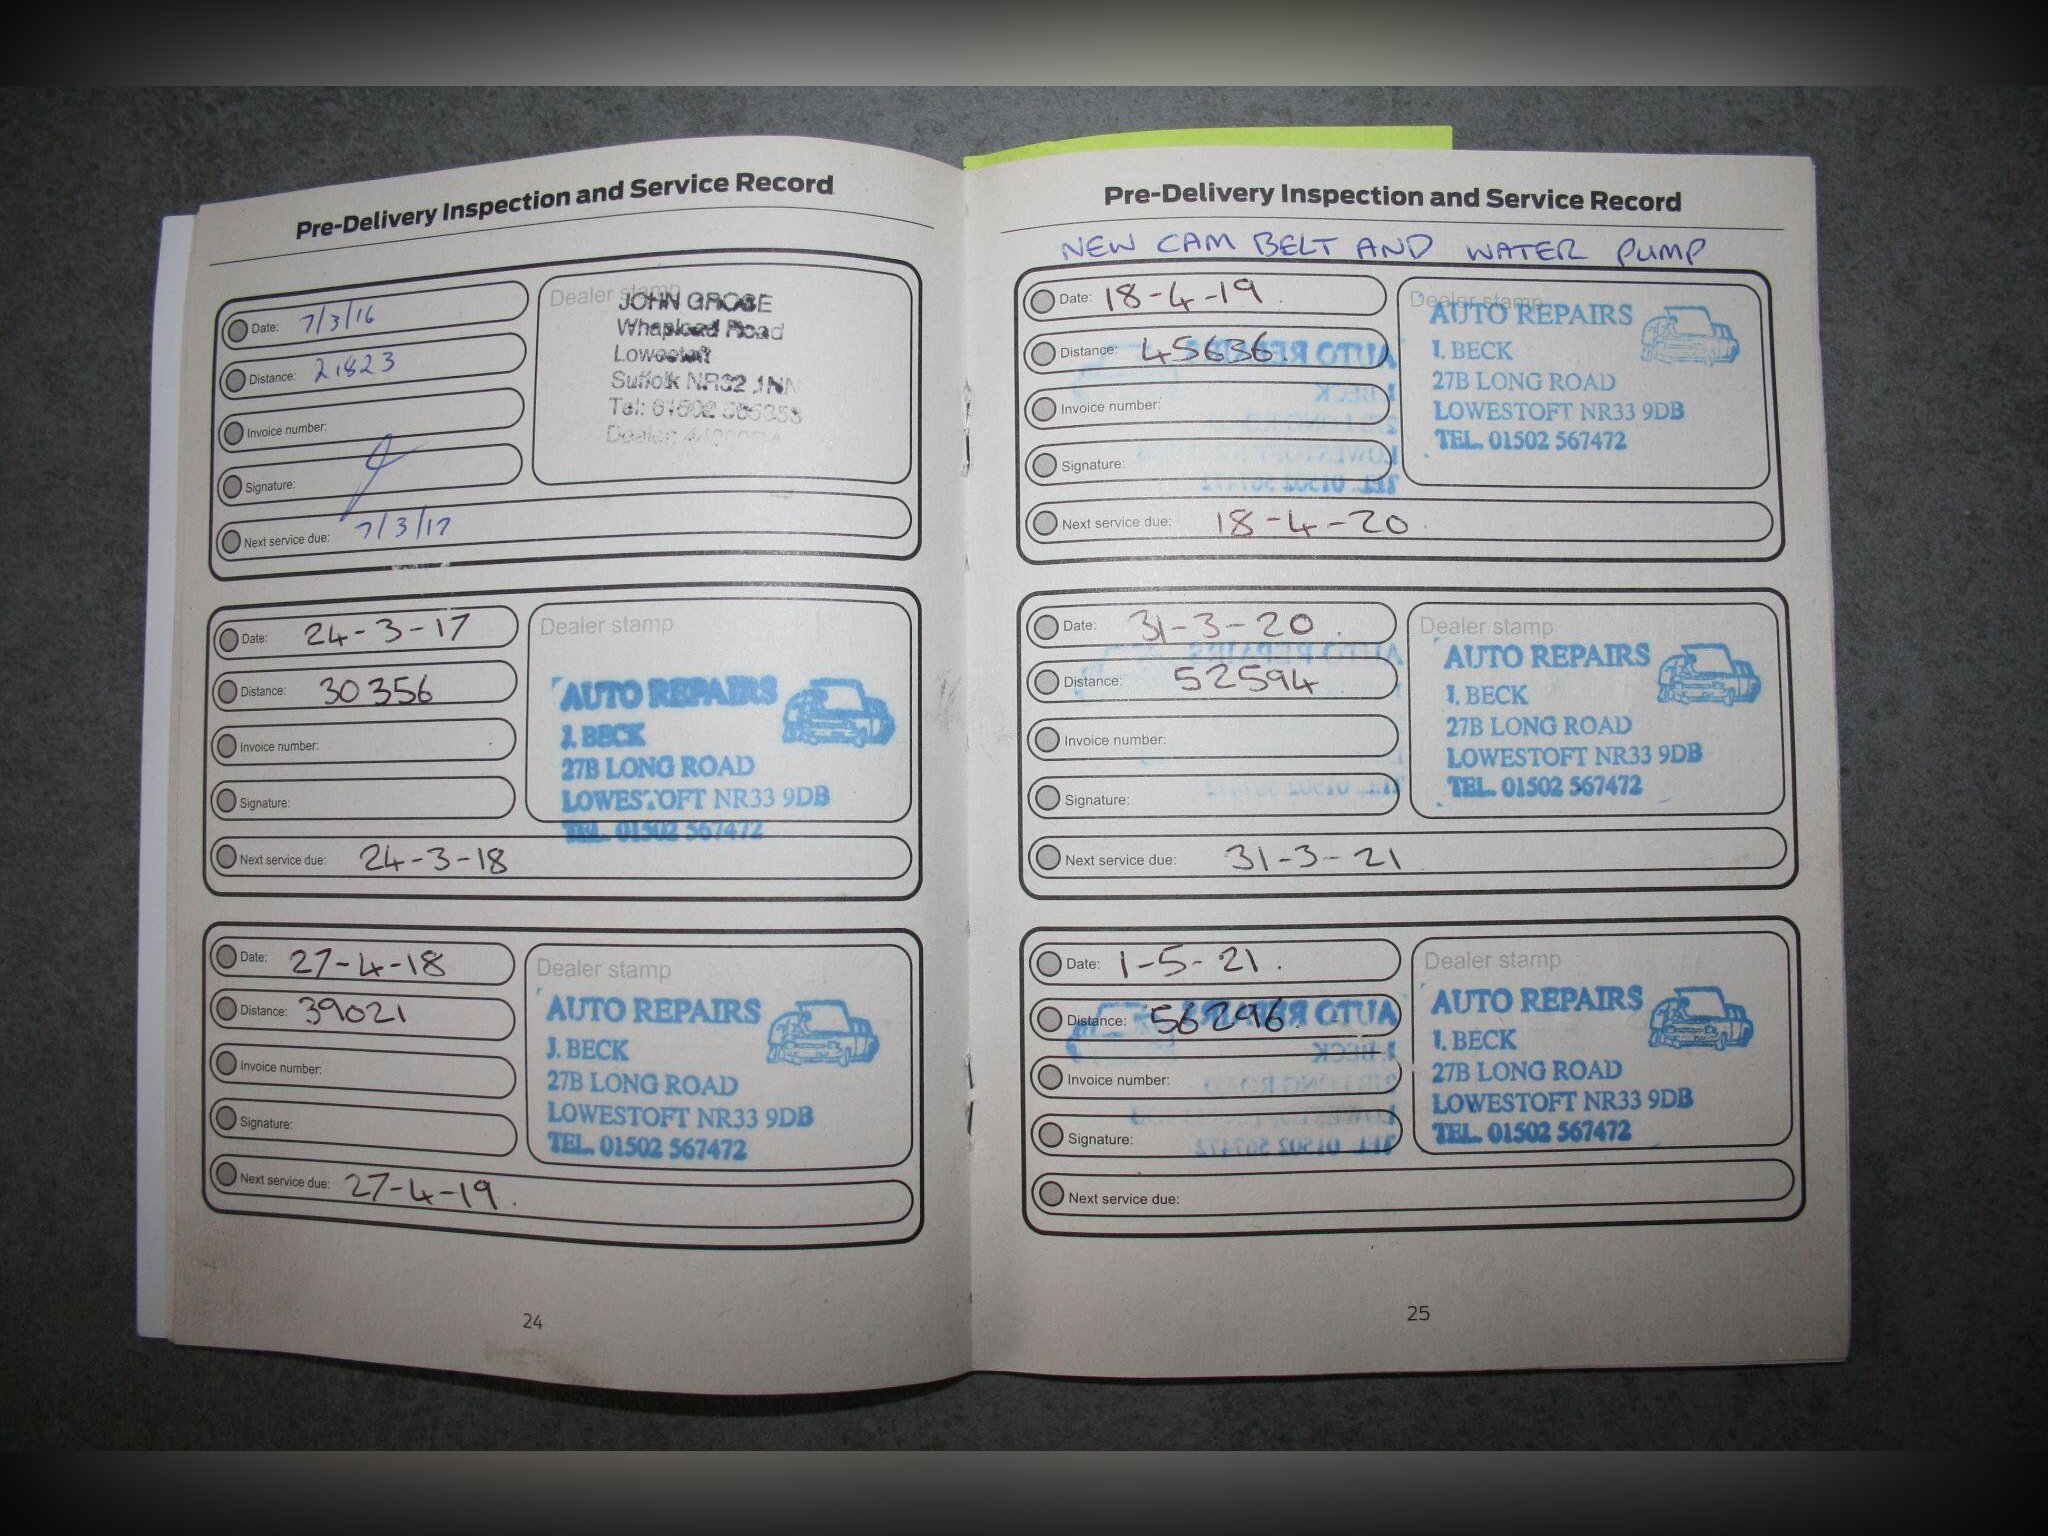 Pre-Delivery Inspection and Service Record
Date: 7/3/16
Distance: 21823
Invoice number:
Signature:
Next service due: 7/3/17
Dealer stamp
JOHN GROSE
Whapload Road
Lowestoft
Suffolk NR32 1NN
Tel: 01502
Dealer:
Date: 24-3-17
Distance: 30356
Invoice number:
Signature:
Next service due: 24-3-18
Dealer stamp
AUTO REPAIRS
J. BECK
27B LONG ROAD
LOWESTOFT NR33 9DB
TEL. 01502 567472
Date: 27-4-18
Distance: 39021
Invoice number:
Signature:
Next service due: 27-4-19.
Dealer stamp
AUTO REPAIRS
J. BECK
27B LONG ROAD
LOWESTOFT NR33 9DB
TEL. 01502 567472
24
Pre-Delivery Inspection and Service Record
NEW CAM BELT AND WATER PUMP
Date: 18-4-19.
Distance: 45636.
Invoice number:
Signature:
Next service due: 18-4-20.
Dealer stamp
AUTO REPAIRS
J. BECK
27B LONG ROAD
LOWESTOFT NR33 9DB
TEL. 01502 567472
Date: 31-3-20.
Distance: 52594
Invoice number:
Signature:
Next service due: 31-3-21
Dealer stamp
AUTO REPAIRS
J. BECK
27B LONG ROAD
LOWESTOFT NR33 9DB
TEL. 01502 567472
Date: 1-5-21.
Distance: 56296.
Invoice number:
Signature:
Next service due:
Dealer stamp
AUTO REPAIRS
J. BECK
27B LONG ROAD
LOWESTOFT NR33 9DB
TEL. 01502 567472
25